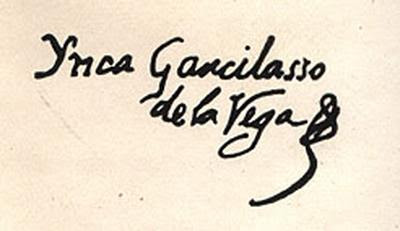 Ynca Garcilasso
de la Vega